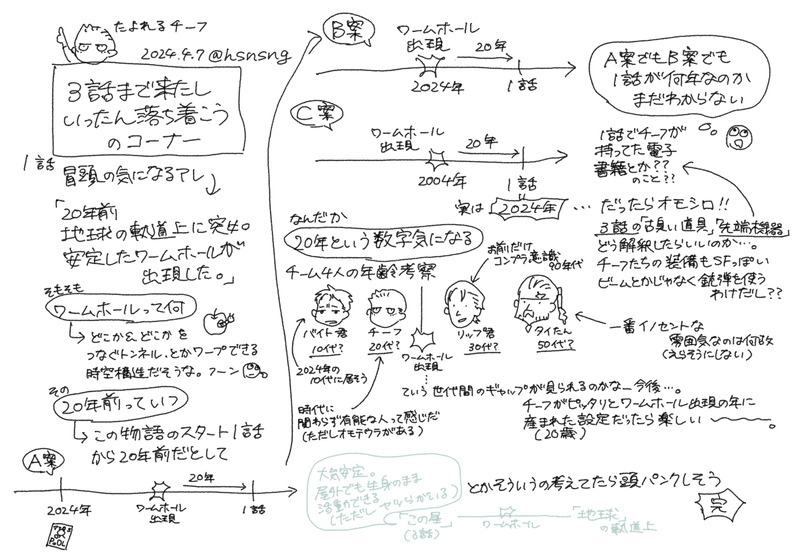 たよれるチーフ
2024.4.7 @hsnsng
3話まで来たし
いったん落ち着こう
のコーナー
1話
冒頭の気になるアレ
「20年前
地球の軌道上に突如。
安定したワームホールが
出現した。」
そもそも
ワームホールって何
どこかとどこかを
つなぐトンネル、とかワープできる
時空構造だそうな。フーン
その
20年前っていつ
この物語のスタート1話
から20年前だとして
A案
20年
2024年
ワームホール
出現
1話
B案
ワームホール
出現
20年
2024年
1話
C案
ワームホール
出現
20年
2004年
1話
実は
2024年
…だったらオモシロ!!
A案でもB案でも
1話が何年なのか
まだわからない
1話でチーフが
持ってた電子
書籍とか??
のこと??
3話の「古臭い道具」「先端機器」
どう解釈したらいいのか…。
チーフたちの装備もSFっぽい
ビームとかじゃなく銃弾を使う
わけだし??
なんだか
20年という数字気になる
チーム4人の年齢考察
お前だけ
コンプラ意識
90年代
バイト君
10代?
チーフ
20代?
ワームホール
出現
リップ君
30代?
タイたん
50代?
2024年の
10代に居そう
時代に
関わらず有能な人って感じだ
(ただしオモテウラがある)
一番イノセントな
雰囲気なのは何故
(えらそうにしない)
…ていう世代間のギャップが見られるのかな…今後…。
チーフがピッタリとワームホール出現の年に
産まれた設定だったら楽しい
(20歳)
大気安定。
屋外でも生身のまま
活動ができる
(ただしヤツらがいる)
「この星」
(3話)
ワームホール
「地球」
の軌道上
とかそういうの考えてたら頭パンクしそう
完